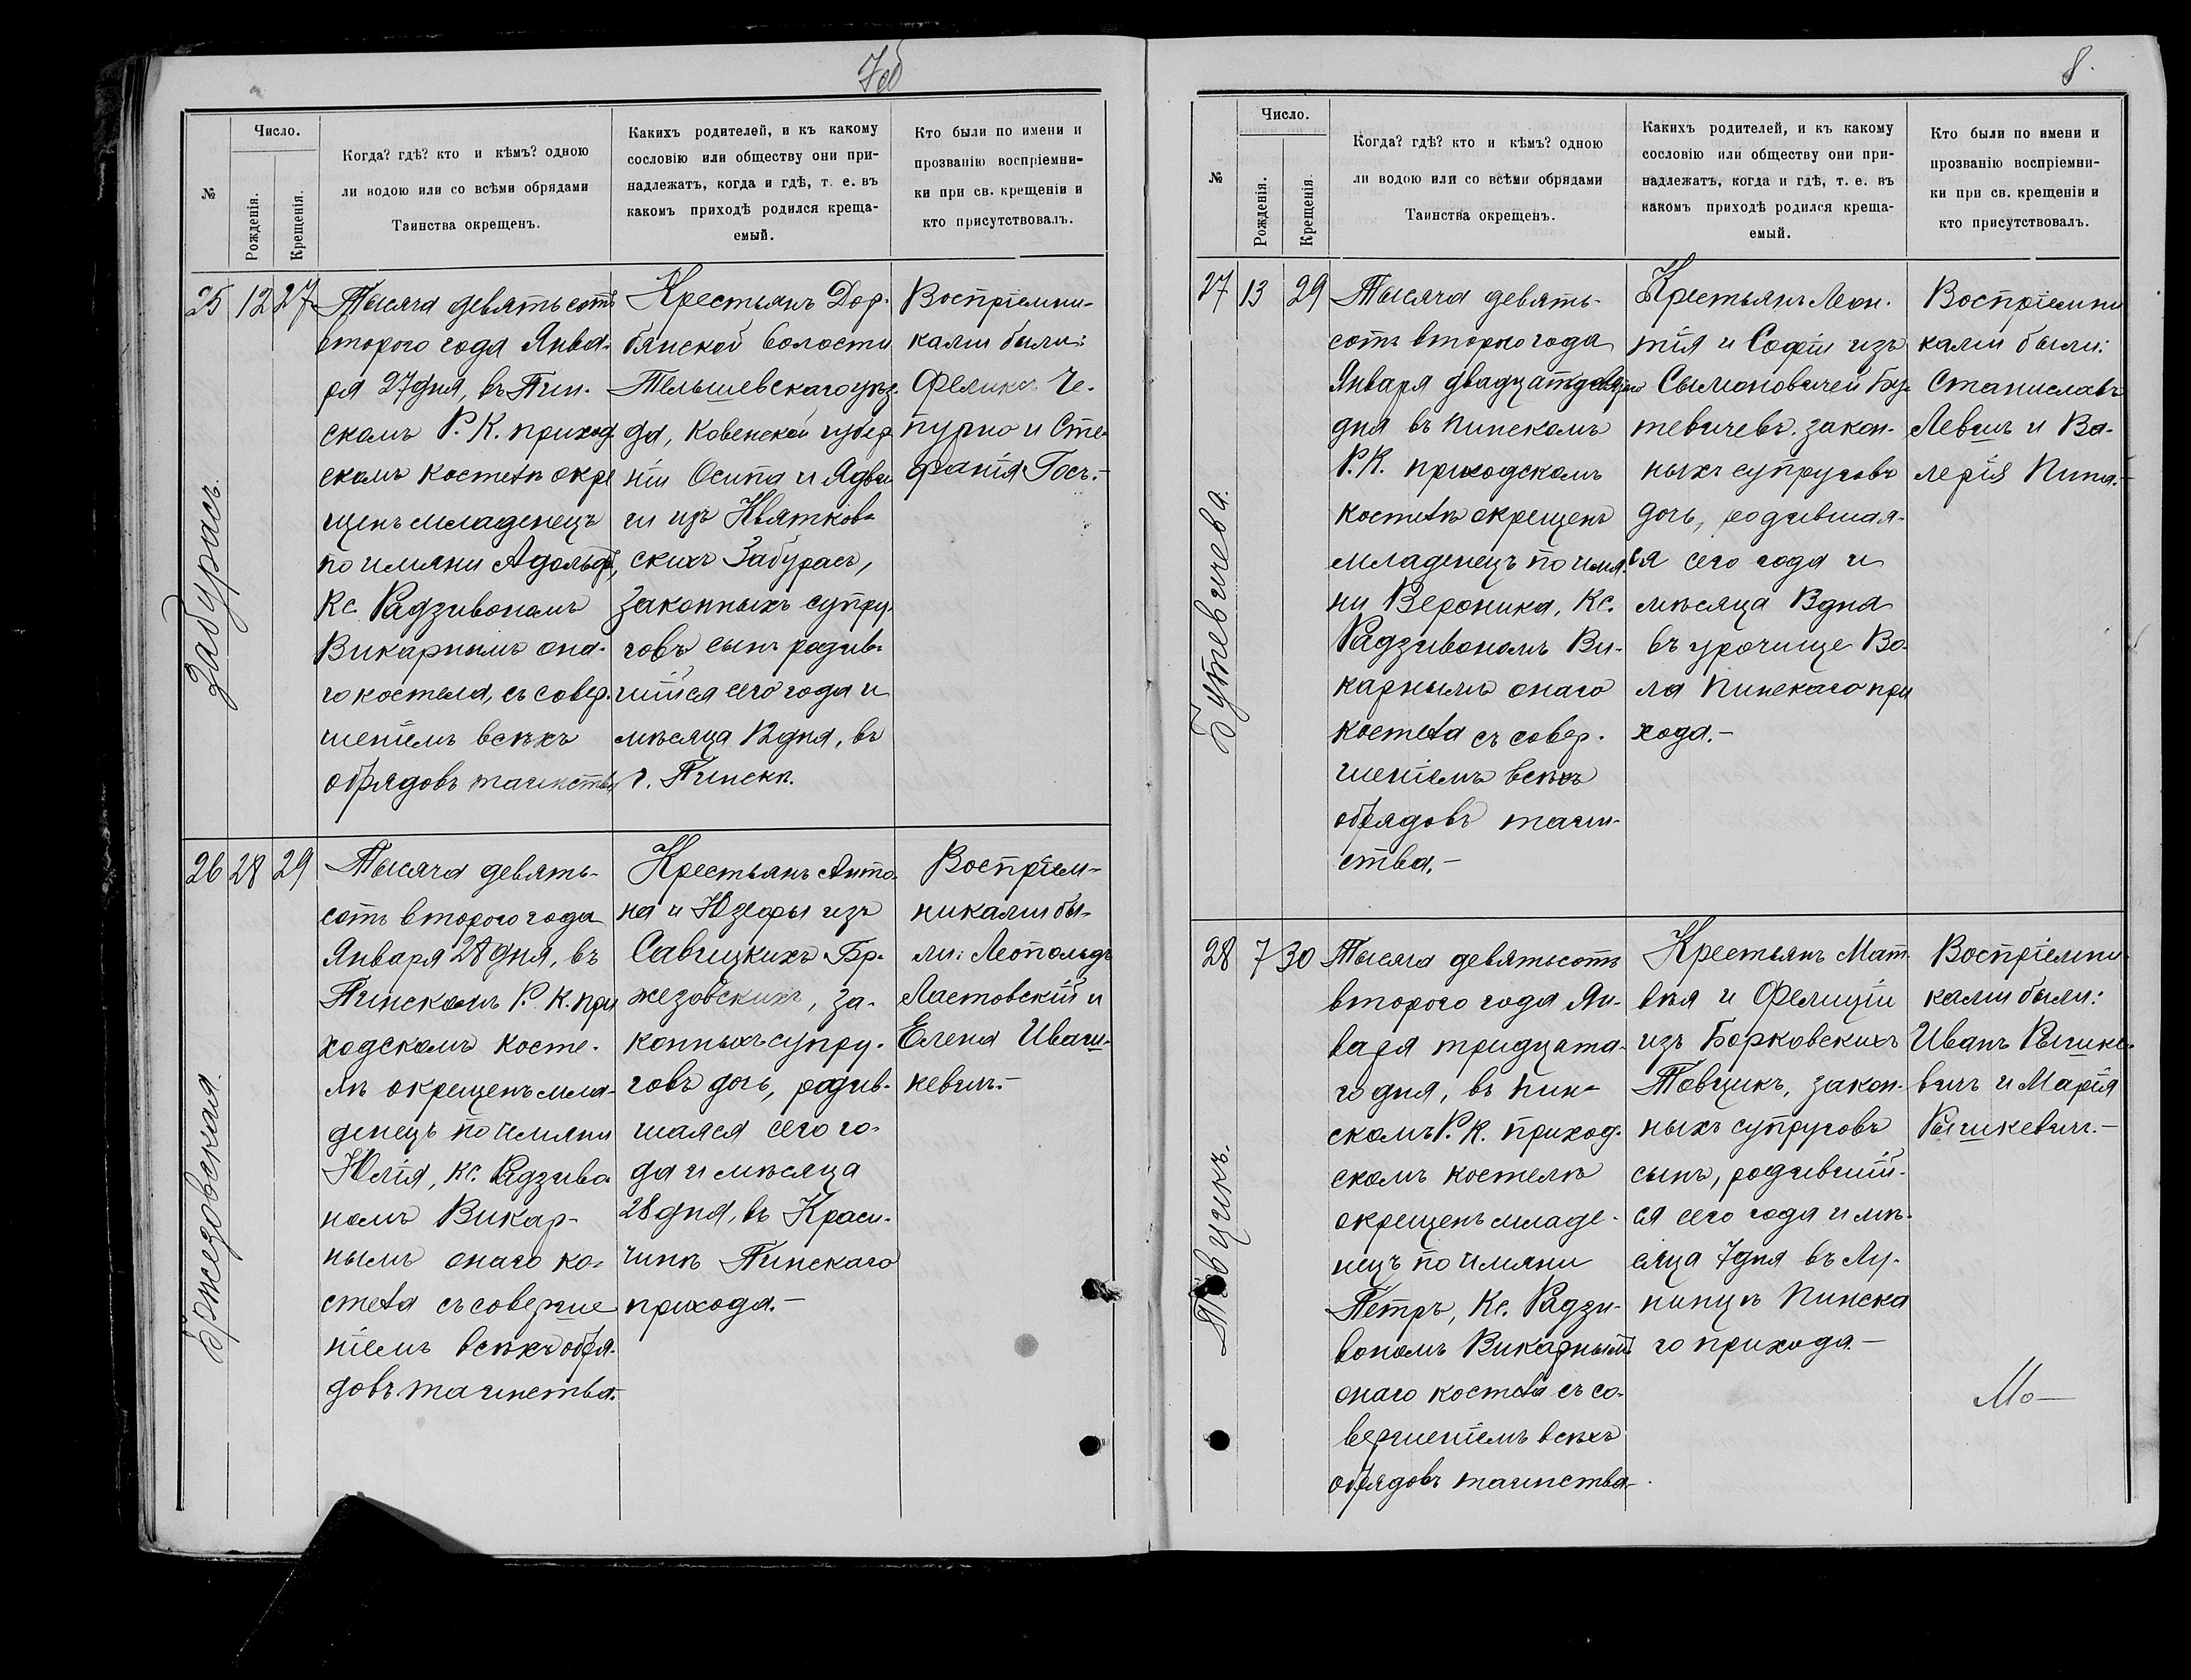 7об
№
Число.
Рожденія.
Крещенія.
Когда? гдѣ? кто и кѣмъ? одною
ли водою или со всѣми обрядами
Таинства окрещенъ.
Какихъ родителей, и къ какому
сословію или обществу они при-
надлежатъ, когда и гдѣ, т. е. въ
какомъ приходѣ родился креща-
емый.
Кто были по имени и
прозванію воспріемни-
ки при св. крещеніи и
кто присутствовалъ.
Забурасъ.
25 12 27
Тысяча девятьсотъ
второго года Янва-
ря 27 дня, въ Пин-
скомъ Р. К. приход-
скомъ костелѣ окре
щенъ младенецъ
по имяни Адольфъ,
Кс. Радзивономъ
Викарнымъ она-
го костела, съ совер-
шеніемъ всѣхъ
обрядовъ таинства
Крестьянъ Дор-
бянской волости
Тельшевскаго уѣз-
да, Ковенской губер
ніи Осипа и Ядви
ги изъ Квятков-
скихъ Забурасъ,
законныхъ супру-
говъ сынъ родив-
шійся сего года и
мѣсяца 12 дня, въ
г. Пинскѣ.
Воспріемни-
ками были:
Феликсъ Че-
пурно и Сте-
фанія Госъ.-
Бржезовская.
26 28 29
Тысяча девять-
сотъ второго года
Января 28 дня, въ
Пинскомъ Р. К. при
ходскомъ косте-
лѣ окрещенъ мла-
денецъ по имяни
Юлія, Кс. Радзиво
номъ Викар-
нымъ онаго ко-
стела съ соверше
ніемъ всѣхъ обря-
довъ таинства.-
Крестьянъ Анто-
на и Юзефы изъ
Савицкихъ Бр-
жезовскихъ, за-
конныхъ супру-
говъ дочь, родив-
шаяся сего го-
да и мѣсяца
28 дня, въ Краси-
чинѣ Пинскаго
прихода.-
Воспріем-
никами бы-
ли: Леопольдъ
Ластовскій и
Елена Иваш-
кевичъ.-
8.
№
Число.
Рожденія.
Крещенія.
Когда? гдѣ? кто и кѣмъ? одною
ли водою или со всѣми обрядами
Таинства окрещенъ.
Какихъ родителей, и къ какому
сословію или обществу они при-
надлежатъ, когда и гдѣ, т. е. въ
какомъ приходѣ родился креща-
емый.
Кто были по имени и
прозванію воспріемни-
ки при св. крещеніи и
кто присутствовалъ.
Бутевичева.
27 13 29
Тысяча девять-
сотъ второго года
Января двадцать
дня въ Пинскомъ
Р. К. приходскомъ
костелѣ окрещенъ
младенецъ по имя-
ни Вероника, Кс.
Радзивономъ Ви-
карнымъ онаго
костела съ совер-
шеніемъ всѣхъ
обрядовъ таин-
ства.-
Крестьянъ Леон-
тія и Софіи изъ
Сымоновичей Бу-
тевичевъ. закон-
ныхъ супруговъ
дочь, родившая-
ся сего года и
мѣсяца 13 дня
въ урочище Во-
ла Пинскаго при
хода.-
Воспріемни
ками были:
Станиславъ
Левшъ и Ва-
лерія Пина.-
Товцикъ.
28 7 30
Тысяча девятьсотъ
второго года Ян-
варя тридцата-
го дня, въ Пин-
скомъ Р. К. приход-
скомъ костелѣ
окрещенъ младе-
нецъ по имяни
Петръ, Кс. Радзи-
вономъ Викарнымъ
онаго костела съ со-
вершеніемъ всѣхъ
обрядовъ таинства.-
Крестьянъ Мат
вѣя и Фелиціи
изъ Борковскихъ
Товцикъ, закон-
ныхъ супруговъ
сынъ, родившій-
ся сего года и мѣ-
сяца 7 дня въ Лу-
нинцѣ Пинска
го прихода.-
Воспріемни-
ками были:
Иванъ Рышке-
вичъ и Марія
Рышкевичъ.-
Мо-